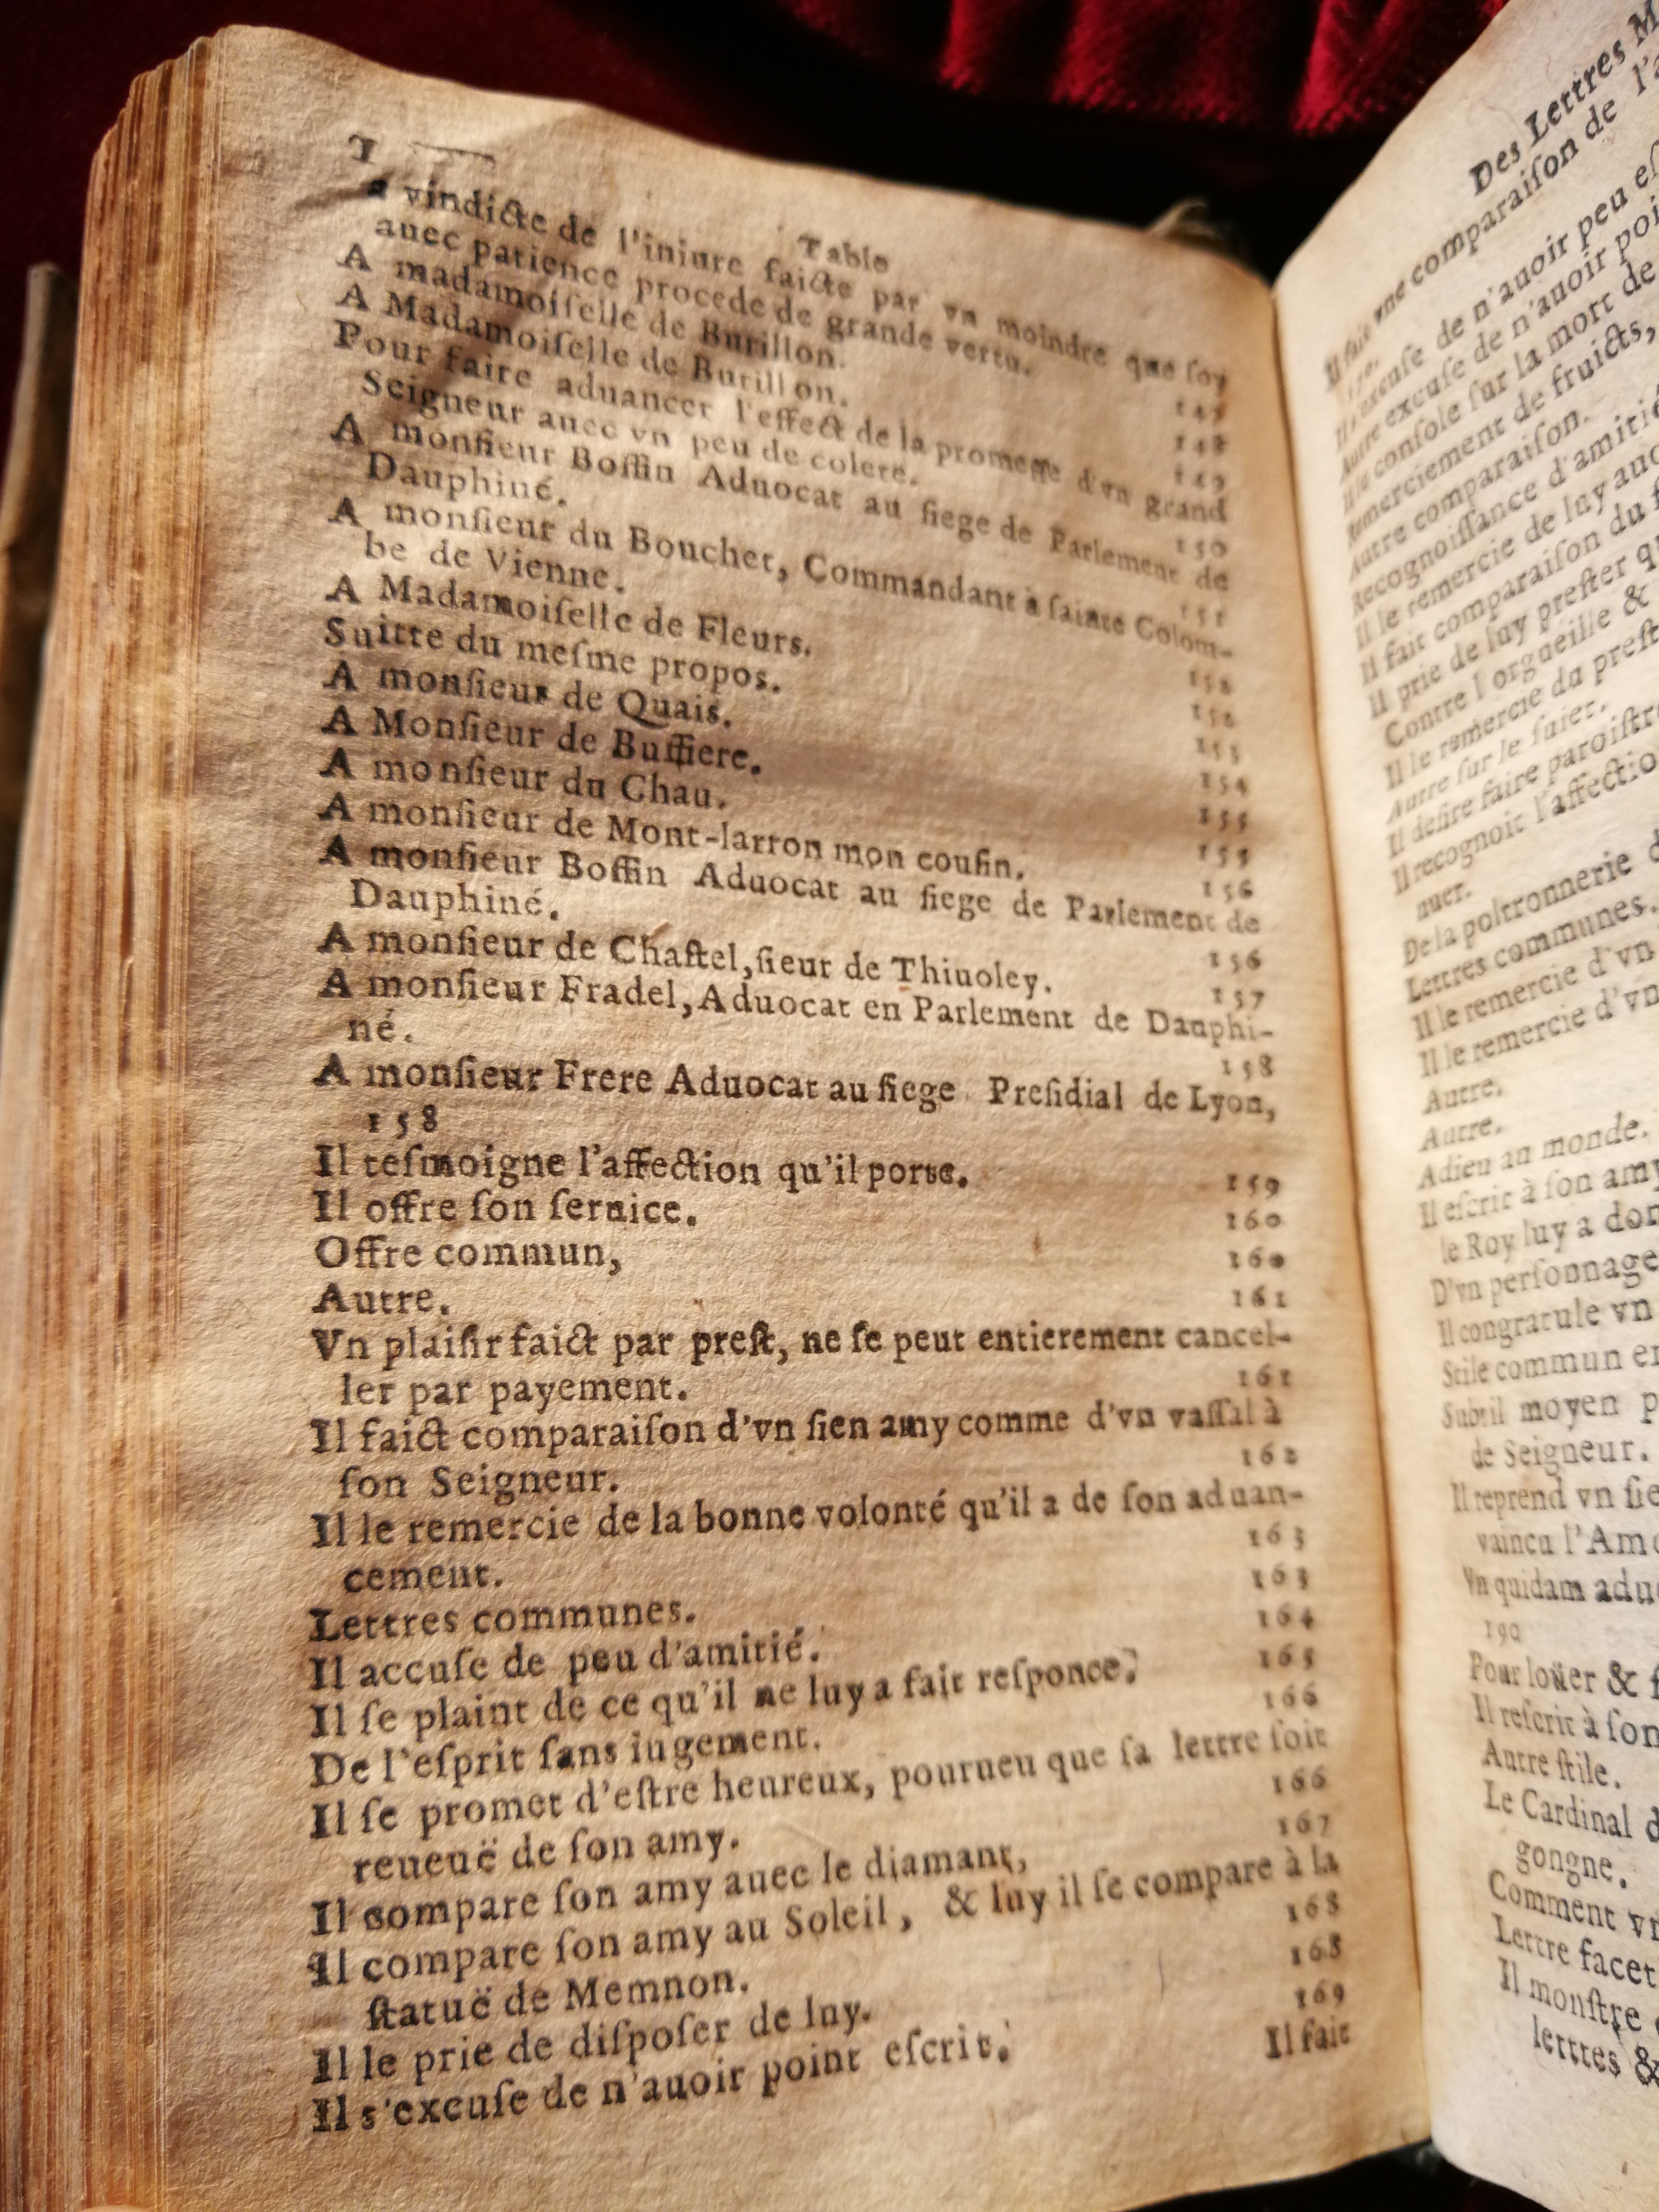 Table
a vindicte de l'iniure faicte par vn moindre que ſoy
auec patience procede de grande vertu. 147
A madamoiſelle de Burillon. 148
A Madamoiſelle de Burillon. 149
Pour faire aduancer l'effect de la promeſſe d'vn grand
Seigneur auec vn peu de colere. 150
A monſieur Boffin Aduocat au ſiege de Parlement de
Dauphiné. 151
A monſieur du Bouchet, Commandant à ſainte Colom-
be de Vienne. 152
A Madamoiſelle de Fleurs. 152
Suitte du meſme propos. 153
A monſieur de Quais. 154
A Monſieur de Buffiere. 155
A monſieur du Chau. 155
A monſieur de Mont-larron mon couſin. 156
A monſieur Boffin Aduocat au ſiege de Parlement de
Dauphiné. 156
A monſieur de Chaſtel, ſieur de Thiuoley. 157
A monſieur Fradel, Aduocat en Parlement de Dauphi-
né. 158
A monſieur Frere Aduocat au ſiege Preſidial de Lyon,
158
Il teſmoigne l'affection qu'il porte. 159
Il offre ſon ſeruice. 160
Offre commun, 160
Autre. 161
Vn plaiſir faict par preſt, ne ſe peut entierement cancel-
ler par payement. 161
Il faict comparaiſon d'vn ſien amy comme d'vn vaſſal à
ſon Seigneur. 162
Il le remercie de la bonne volonté qu'il a de ſon aduan-
cement. 163
Lettres communes. 163
Il accuſe de peu d'amitié. 164
Il ſe plaint de ce qu'il ne luy a fait reſponce. 165
De l'eſprit ſans iugement. 166
Il ſe promet d'eſtre heureux, pourueu que ſa lettre ſoit
reueuë de ſon amy. 166
Il compare ſon amy auec le diamant, 167
Il compare ſon amy au Soleil, & luy il ſe compare à la
ſtatuë de Memnon. 168
Il le prie de diſpoſer de luy. 168
Il s'excuſe de n'auoir point eſcrit. 169
Il fait
Des Lettres
Il fait vne comparaiſon de
170.
Il s'excuſe de n'auoir peu
Autre excuſe de n'auoir
Il le conſole ſur la mort de
Remerciement de fruicts,
Autre comparaiſon.
Recognoiſſance d'amitié
Il le remercie de luy
Il fait comparaiſon du
Il prie de luy preſter
Contre l'orgueille &
Il le remercie du
Autre ſur le ſuiet.
Il deſire faire
Il recognoit
nuer.
De la poltronnerie
Lettres communes.
Il le remercie d'vn
Il le remercie d'vn
Autre.
Autre.
Adieu au monde.
Il eſcrit à ſon amy
le Roy luy a
D'vn perſonnage
Il congratule vn
Stile commun
Subtil moyen
de Seigneur.
Il reprend vn
vaincu
Vn quidam
190
Pour loüer &
Il reſcrit à ſon
Autre ſtile.
Le Cardinal
gongne.
Comment
Lettre
Il monſtre
letttes &